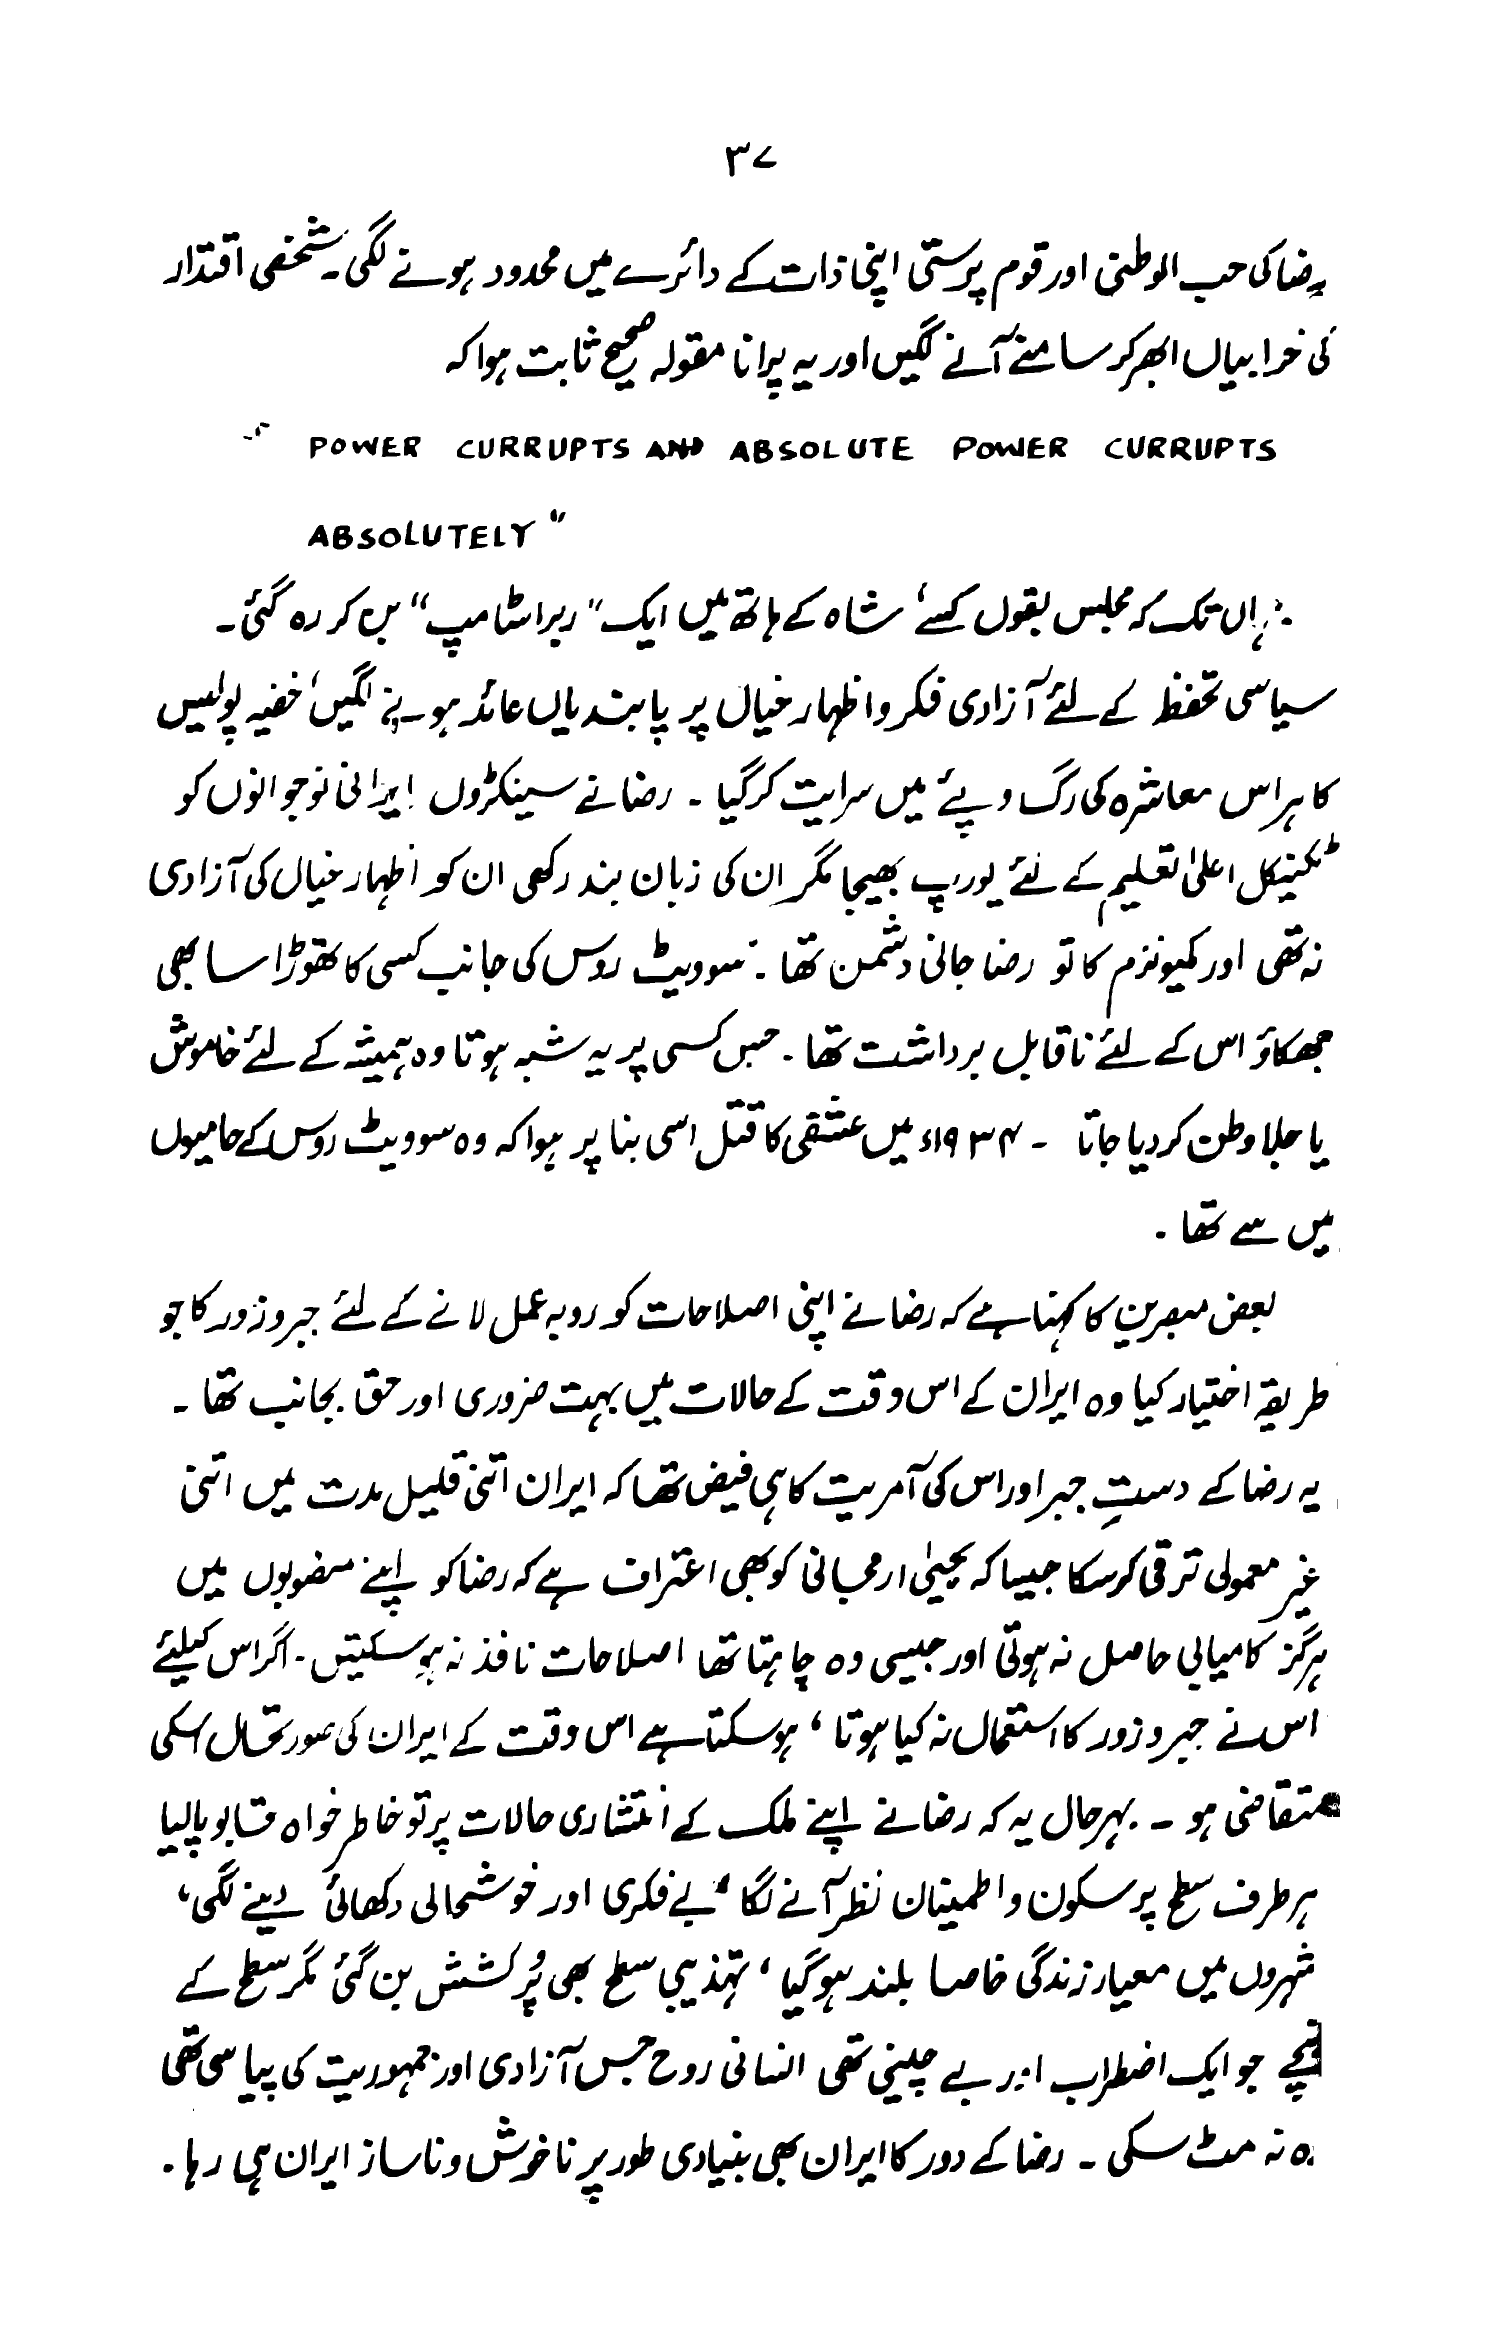 ۳۷
رضا کی حب الوطنی اور قوم پرستی اپنی ذات کے دائرے میں محدود ہونے لگی۔ شخصی اقتدار
کی خرابیاں ابھر کر سامنے آنے لگیں اور یہ پرانا مقولہ صحیح ثابت ہوا کہ
" POWER CURRUPTS AND ABSOLUTE POWER CURRUPTS
ABSOLUTELY "
یہاں تک کہ مجلس بقول کسے، شاہ کے ہاتھ میں ایک "ربر اسٹامپ" بن کر رہ گئی۔
سیاسی تحفظ کے لئے آزادی فکر و اظہار خیال پر پابندیاں عائد ہونے لگیں، خفیہ پولیس
کا ہراس معاشرہ کی رگ و پئے میں سرایت کر گیا۔ رضا نے سینکڑوں ایرانی نوجوانوں کو
ٹکنیکل اعلیٰ تعلیم کے لئے یورپ بھیجا مگر ان کی زبان بند رکھی ان کو اظہار خیال کی آزادی
نہ تھی اور کمیونزم کا تو رضا جانی دشمن تھا۔ سوویٹ روس کی جانب کسی کا تھوڑا سا بھی
جھکاؤ اس کے لئے ناقابل برداشت تھا۔ جس کسی پر یہ شبہ ہوتا وہ ہمیشہ کے لئے خاموش
یا جلا وطن کر دیا جاتا ۔ ۱۹۳۴ء میں عشقی کا قتل اسی بنا پر ہوا کہ وہ سوویٹ روس کے حامیوں
میں سے تھا۔
بعض مبصرین کا کہنا ہے کہ رضا نے اپنی اصلاحات کو روبہ عمل لانے کے لئے جبر و زور کا جو
طریقہ اختیار کیا وہ ایران کے اس وقت کے حالات میں بہت ضروری اور حق بجانب تھا۔
یہ رضا کے دستِ جبر اور اس کی آمریت کا ہی فیض تھا کہ ایران اتنی قلیل مدت میں اتنی
غیر معمولی ترقی کر سکا جیسا کہ یحییٰ ارمجانی کو بھی اعتراف ہے کہ رضا کو اپنے منصوبوں میں
ہرگز کامیابی حاصل نہ ہوتی اور جیسی وہ چاہتا تھا اصلاحات نافذ نہ ہو سکیتں۔ اگر اس کیلئے
اس نے جبر و زور کا استعمال نہ کیا ہوتا، ہو سکتا ہے اس وقت کے ایران کی صورتحال اسکی
متقاضی ہو ۔ بہرحال یہ کہ رضا نے اپنے ملک کے انتشاری حالات پر تو خاطر خواہ قابو پا لیا
ہر طرف سطح پر سکون و اطمینان نظر آنے لگا، بے فکری اور خوشحالی دکھائی دینے لگی،
شہروں میں معیار زندگی خاصا بلند ہو گیا، تہذیبی سطح بھی پُرکشش بن گئی مگر سطح کے
نیچے جو ایک اضطراب اور بے چینی تھی انسانی روح جس آزادی اور جمہوریت کی پیاسی تھی
وہ نہ مٹ سکی ۔ رضا کے دور کا ایران بھی بنیادی طور پر ناخوش و ناساز ایران ہی رہا۔